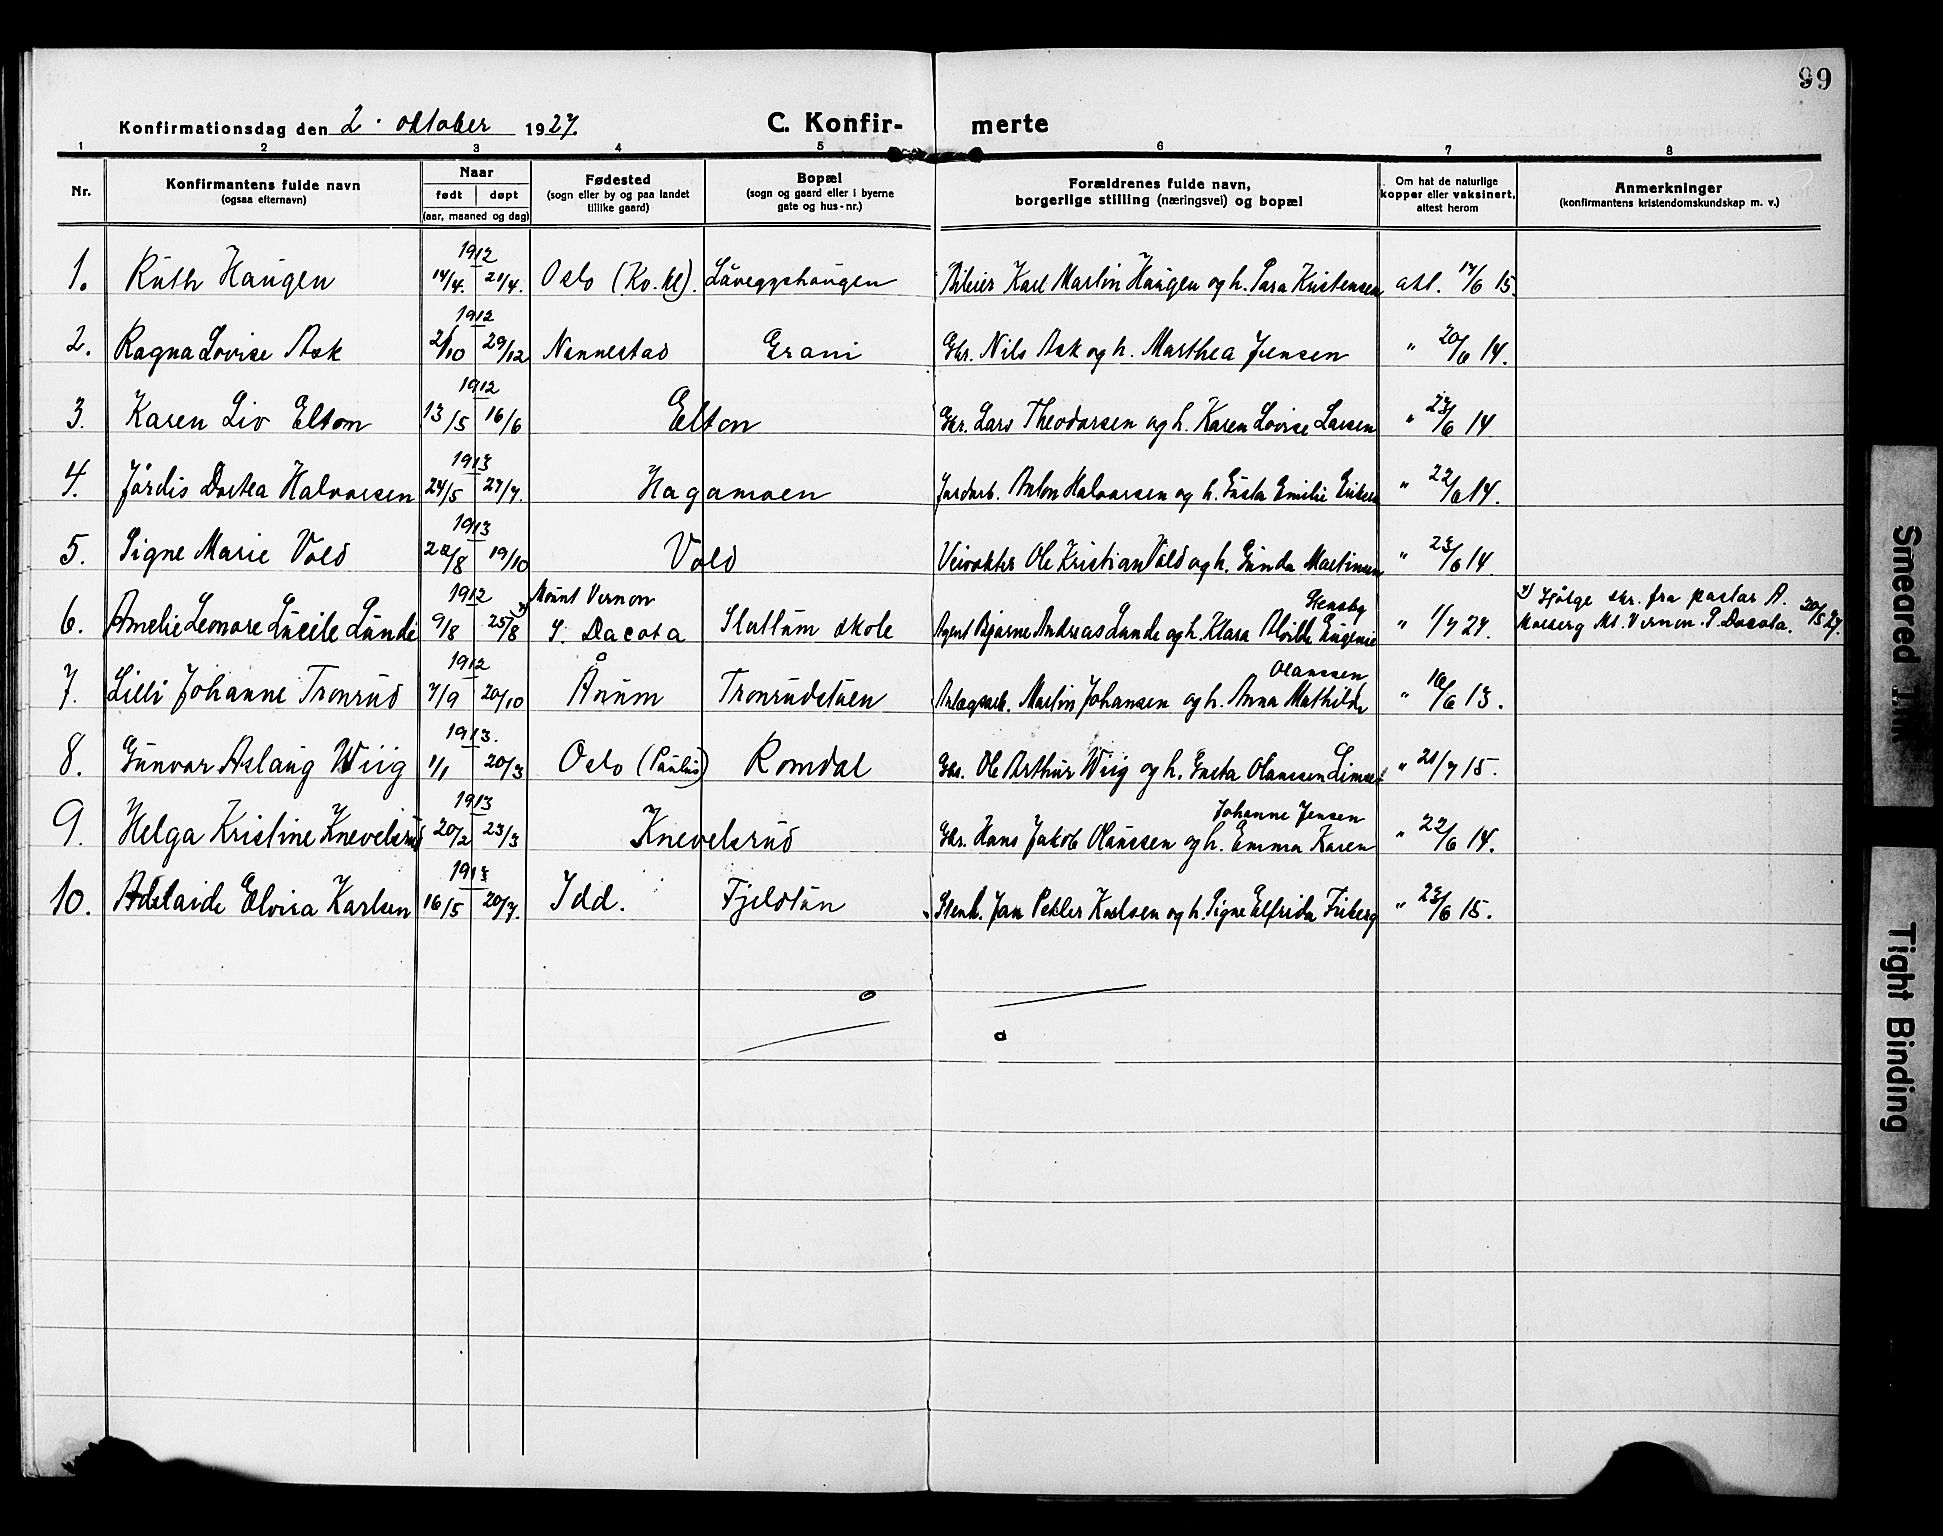 99
Konfirmationsdag den 2. oktober 1927. C. Konfir- merte
1 2 3 4 5 6 7 8
Nr. Konfirmantens fulde navn (ogsaa efternavn) Naar født døpt (aar, maaned og dag) Fødested (sogn eller by og paa landet tillike gaard) Bopæl (sogn og gaard eller i byerne gate og hus-nr.) Forældrenes fulde navn, borgerlige stilling (næringsvei) og bopæl Om hat de naturlige kopper eller vaksinert, attest herom Anmerkninger (konfirmantens kristendomskundskap m. v.)
1912
1. Ruth Haugen 14/4. 21/4. Oslo (Kv. kl). Låveggshaugen Karl Martin Haugen og h. Sara Kristensen att. 17/6 15.
1912
2. Ragna Lovise Ask 2/10 29/12 Nannestad Grani Gbr. Nils Ask og h. Marthea Jensen " 20/6 14.
1912
3. Karen Liv Elton 13/5 16/6 Elton Gbr. Lars Theodorsen og h. Karen Lovise Larsen " 23/6 14.
1913
4. Jørdis Dortea Halvorsen 24/5 27/7. Hagamoen Jordarb. Anton Halvorsen og h. Gusta Emilie Eriksen " 22/6 14.
1913
5. Signe Marie Vold 20/8 19/10 Vold Veivokter Ole Kristian Vold og h. Gunda Martinsen " 23/6 14.
1912 Mount Vernon Stensby *) Ifølge skr. fra pastor A.
6. Amelie Leonore Lucile Lunde 9/8 25/8 *) S. Dacota Slattum skole Agent Bjarne Andreas Lunde og h. Klara Alvilde Eugenie " 1/7 27. Mt. Vernon. S. Dacota. 20/5 27.
1912 Olaussen
7. Lilli Johanne Tronrud 7/9 20/10 Ånum Tronrudstuen Anlægsarb. Martin Johansen og h. Anna Mathilde " 16/6 13.
1913.
8. Gunvor Aslaug Wiig 1/1 20/3 Oslo (Paulus) Romdal Gbr. Ole Arthur Wiig og h. Gusta Olaussen " 21/7 15.
1913 Johanne Jensen
9. Helga Kristine Knevelsrud 20/2 23/3 Knevelsrud Gbr. Hans Jakob Olaussen og h. Emma Karen " 22/6 14.
1913
10. Adelaide Elvira Karlsen 16/5 20/7. Idd. Fjeldtun Stenh. Jan Karlsen og h. Signe Elfrida Friberg " 23/6 15.
Smeared Ink
Tight Binding